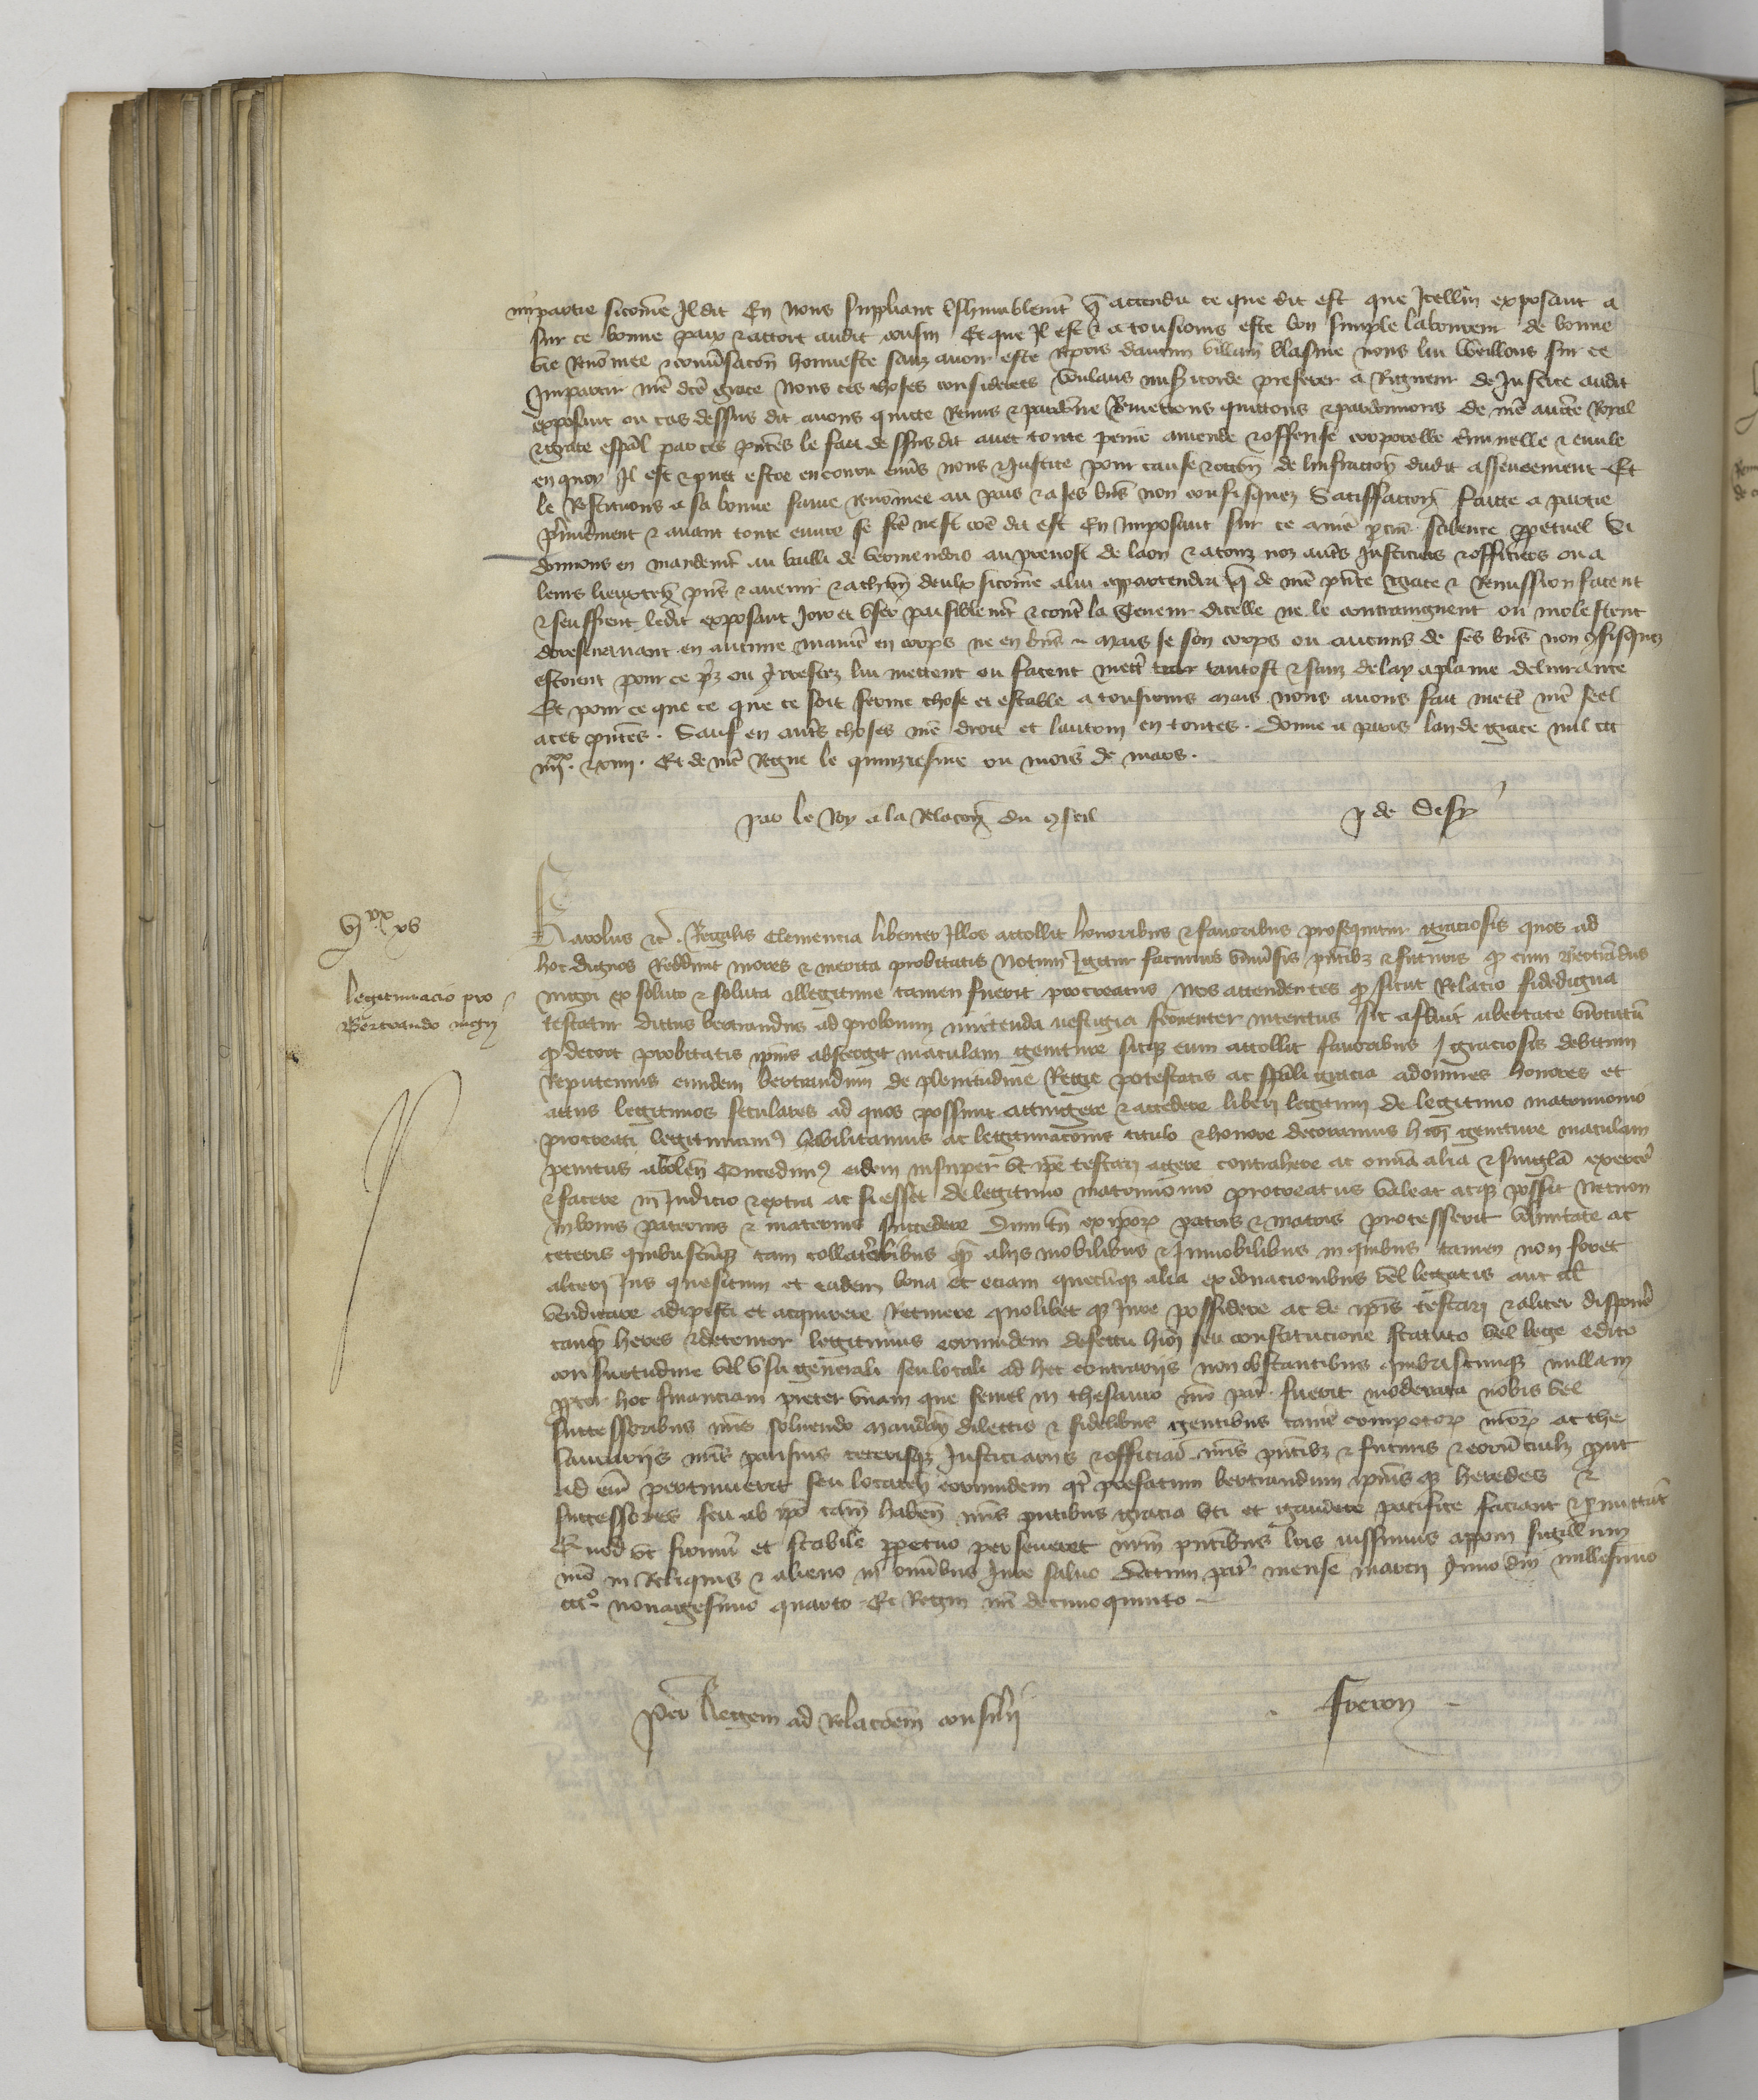 mpartie sicome Il dit En nous supliant Et humblemt q attendu ce que dit est que Icellui exposant a
sur ce bonne paix & accort audit cousin Et que Il est & a tousiours este bon simple laboureur de bonne
vie Renomee & conversacon honneste sanz avoir este repris daucun villain blasme nous lui veillons sur ce
Impartir nre dce grace Nous ces choses considerees voulans misericorde preferer a Rigueur de Justice audit
exposant ou cas dessus dit avons quicte Remis & pardone Remettons quictons & pardonnons de nre aucte Royal
& grace espal par ces pntes le fait dessus dit avec toute peine amende & offense corporelle criminelle & civile
en quoy Il est & puet estre encouru envs nous & Justice pour cause & occon de linfraccon dudit asseurement Et
le Restituons a sa bonne fame Renomee au pais & a ses bns non confisquez Satisfaccon faicte a partie
prmierement & avant toute euvre se fce nest coe dit est En Imposant sur ce a nre pcur scilence ppetuel Si
donnons en mandemt au bailli de Vermendois au prevost de laon & a touz noz auts Justiciers & officiers ou a
leurs lieuxten pns & avenir & a chun deulx sicome a lui appartendra q de nre pnte grace & Remission facent
& seuffrent ledit exposant Joir et user paisiblemt & contre la teneur dicelle ne le contraingnent ou molestent
doresenavant en aucune maniere en corps ne en bns Mais se son corps ou aucuns de ses bns non ofisquez
estoient pour ce prz ou arrestez lui mettent ou facent mettre tantost & sanz delay a plaine delivrance
Et pour ce que ce soit ferme chose et estable a tousiours mais nous avons fait mettre nre seel
a ces pntes. Sauf en auts choses nre droit et lautruy en toutes. Donne a paris lan de grace mil ccc
iiiixx. & xiiii. Et de nre Regne le quinziesme ou mois de mars.
par le Roy a la Relacon du oseil J de Disy
vixx xv
legitimacio pro
Bertrando mgri
Karolus &c. Regalis clemencia libenter Illos attollit honoribus & favoribus prosequitur graciosis quos ad
hoc dignos Reddunt mores & merita probitatis Notum Igitur facimus universis pntibz & futuris q cum Bertrandus
mgri ex soluto & soluta illegitime tamen fuerit procreatus Nos attendentes q sicut Relacio fidedigna
testatur dictus bertrandus ad proborum mictenda vestigia ferventer intentus sic affluit ubertate virtutum
q decor probitatis ipius abstergit maculam geniture sicq eum attollit favoribus graciosis debitum
Reputemus eundem bertrandum de plenitudine Regie potestatis ac spali gracia ad omnes honores et
actus legitimos seculares ad quos possunt attingere & accedere liberi legitimi de legitimo matrimonio
procreati legitimam habilitamus ac legitimacionis titulo & honore decoramus hui geniture maculam
penitus abolen Concedim eidem insuper ut ipe testari agere contrahere ac omnia alia & singula exercere
& facere in Judicio & extra ac si esset de legitimo matrimonio procreatus valeat atq possit Necnon
in bonis paternis & maternis succedere Dum tn ex ipor patris & matris processerit voluntate ac
ceteris quibuscunq tam collateralibus q aliis mobilibus & Immobilibus in quibus tamen non foret
alteri Jus quesitum et eadem bona et eciam quecunq alia ex donacionibus vel legatis aut al
vendicare adipisci et acquirere Retinere quolibet q Jure possidere ac de ipis testari & aliter disponere
tanq heres & detentor legitimus eorumdem defectu hui seu constitucione statuto vel lege edito
consuetudine vel usu generali seu locali ad hec contrariis non obstantibus quibuscunq nullam
ppter hoc financiam preter unam que semel in thesauro nro par fuerit moderata nobis vel
successoribus nris solvendo mandam dilectis & fidelibus gentibus camere compotor nror ac the
saurariis nris parisius ceterisq Justiciariis & officiar nris pntibz & futuris & eorum cuilz put
ad eum pertinuerit seu locaten eorumdem qt prefatum bertrandum ipius q heredes &
successores seu ab ipo cam haben nris pntibus gracia uti et gaudere pacifice faciant & pmittat
Quod ut firmum et stabile ppetuo perseveret nrm pntibus lris iussimus appon sigillum
nro in Reliquis & alieno in omibus Jure salvo Datum par mense marcii Anno dni millesimo
ccco nonagesimo quarto Et Regni nri decimoquinto
Per Regem ad Relacoem consilii Freron